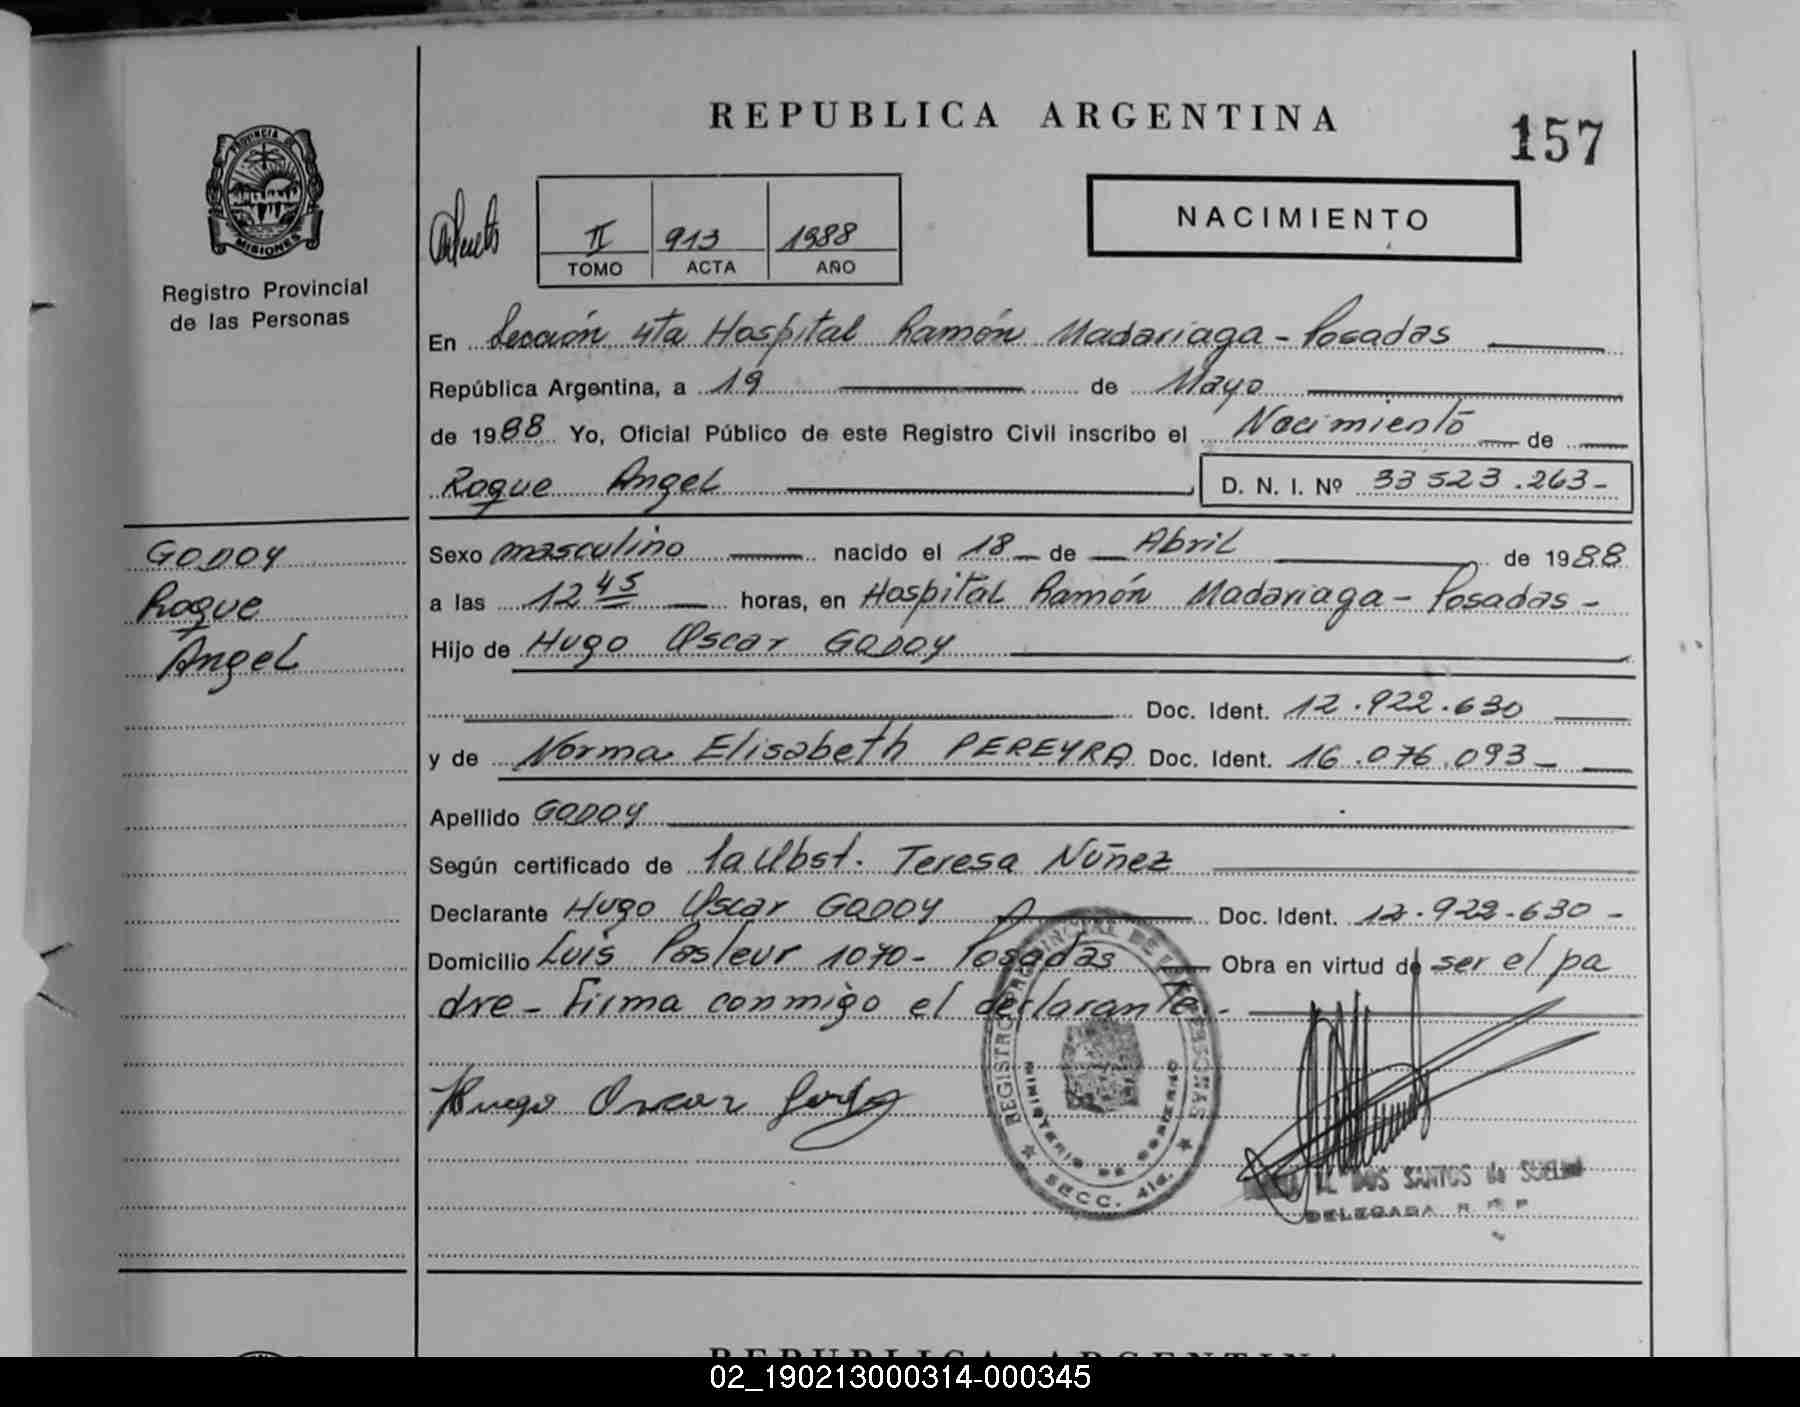 REPUBLICA ARGENTINA
157
PROVINCIA DE
MISIONES
Registro Provincial
de las Personas
II 913 1988
TOMO ACTA AÑO
NACIMIENTO
En Sección 4ta Hospital Ramón Madariaga - Posadas
República Argentina, a 19 de Mayo
de 1988 Yo, Oficial Público de este Registro Civil inscribo el Nacimiento de
Roque Angel D. N. I. Nº 33 523.263-
GODOY
Roque
Angel
Sexo masculino nacido el 18 de Abril de 1988
a las 12 45 horas, en Hospital Ramón Madariaga - Posadas -
Hijo de Hugo Oscar GODOY
Doc. Ident. 12.922.630
y de Norma Elisabeth PEREYRA Doc. Ident. 16.076.093-
Apellido GODOY
Según certificado de la Obst. Teresa Nuñez
Declarante Hugo Oscar GODOY Doc. Ident. 12.922.630 -
Domicilio Luis Pasteur 1070 - Posadas Obra en virtud de ser el pa
dre - Firma conmigo el declarante -
Hugo Oscar Godoy
REGISTRO PROVINCIAL DE LAS PERSONAS
MINISTERIO DE GOBIERNO
SECC. 4ta.
DOS SANTOS de
DELEGADA R. P. P.
REPUBLICA ARGENTINA
02_190213000314-000345